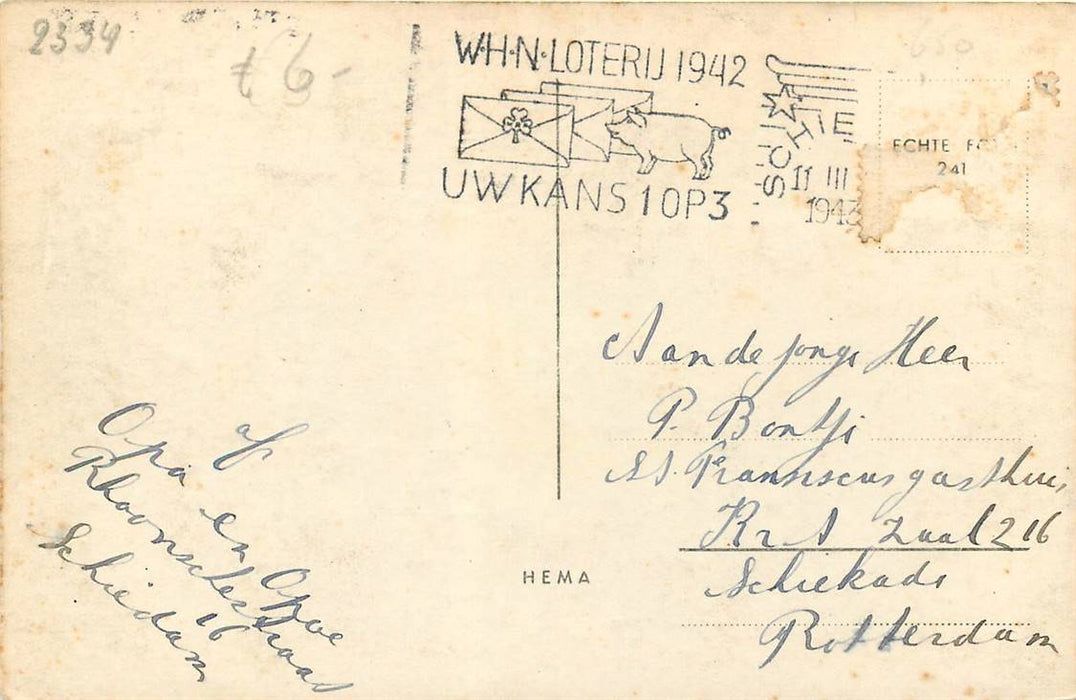 2334
6-
W·H·N·LOTERIJ 1942
UW KANS 1 OP 3
SCHI
IE
11 III
1943
ECHTE FO
241
Aan de jonge Heer
P. Bontje
St. Franciscusgasthuis
Kr A zaal 216
Schiekade
Rotterdam
HEMA
af
Opa en Opoe
Rhoonschestraat
16
Schiedam